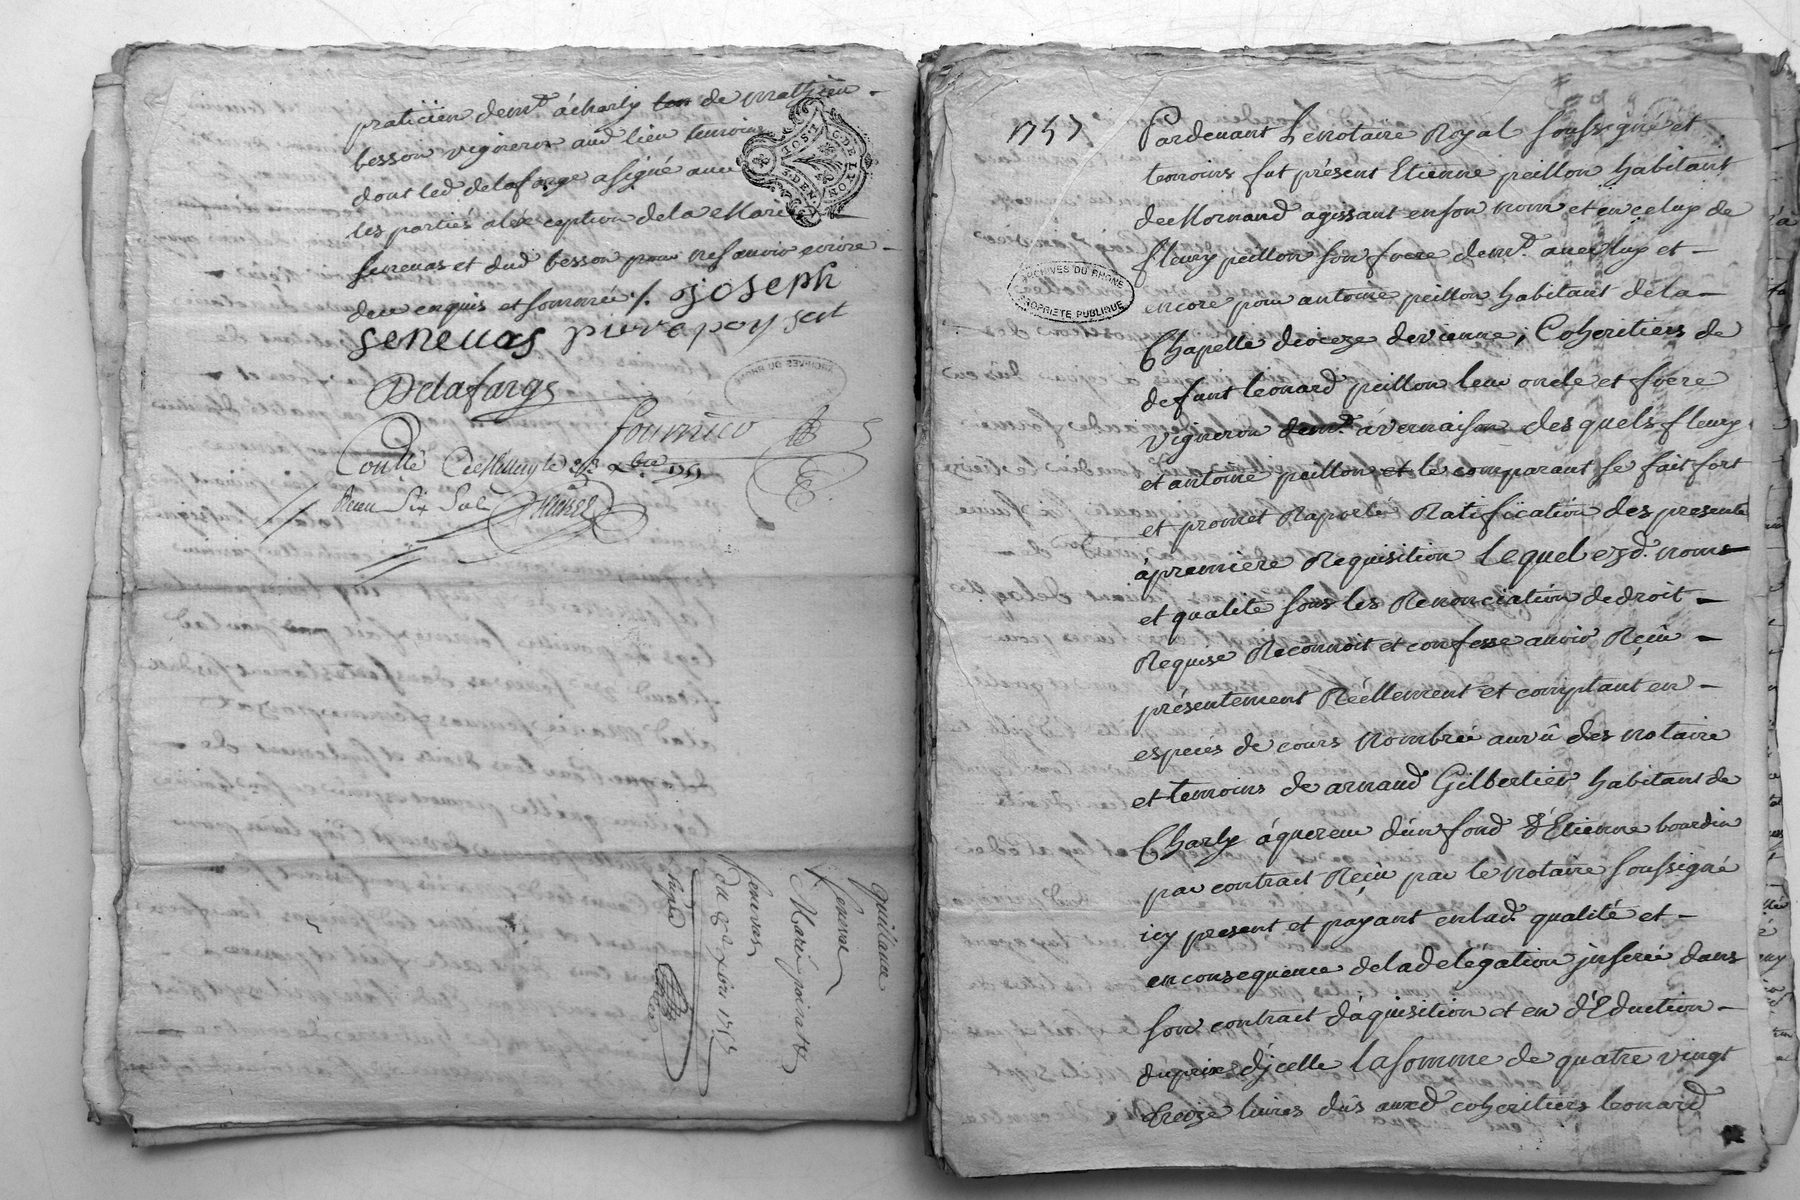 praticien demt à charly de mathieu
besson vigneron aud lieu temoins
dont led delaforge a signé avec
les parties a lexception de la Marie
senevas et dud besson pour ne savoir ecrire
de ce enquis et sommée /. joseph
senevas pierre poy
Delafarge
fournico
Conllé
Reçu six sols
HOSTEL-DE LYON
ARCHIVES DU RHONE
quitance
senevas
a Marie
senevas
1757
Pardevant Le notaire Royal soussigné et
temoins fut présent Etienne peillon habitant
de Mornand agissant en son nom et en celuy de
fleury peillon son frere demt. avec luy et
encore pour antoine peillon habitant de la
ARCHIVES DU RHONE
PROPRIETE PUBLIQUE
Chapelle dioceze de vienne, Coheritiers de
defunt leonard peillon leur oncle et frere
vigneron demt. à vernaison des quels fleury
et antoine peillon et le comparant se fait fort
et promet Raporté Ratification des presente
à première Requisition Lequel esd. noms
et qualité sous les Renonciation de droit
Requise Reconnoit et confesse avoir Reçu
présentement Réellement et comptant en
especés de cours Nombrée au vû des notaire
et temoins de arnaud Gilbertier habitant de
Charly áquereur d'un fond d'Etienne bourdin
par contract Reçu par le notaire soussigné
icy present et payant en lad. qualité et
en consequence de la delegation jnserée dans
son contract d'áquisition et en d'Eduction
du prix d'jcelle la somme de quatre vingt
treize livres dûs auxd coheritiers leonard